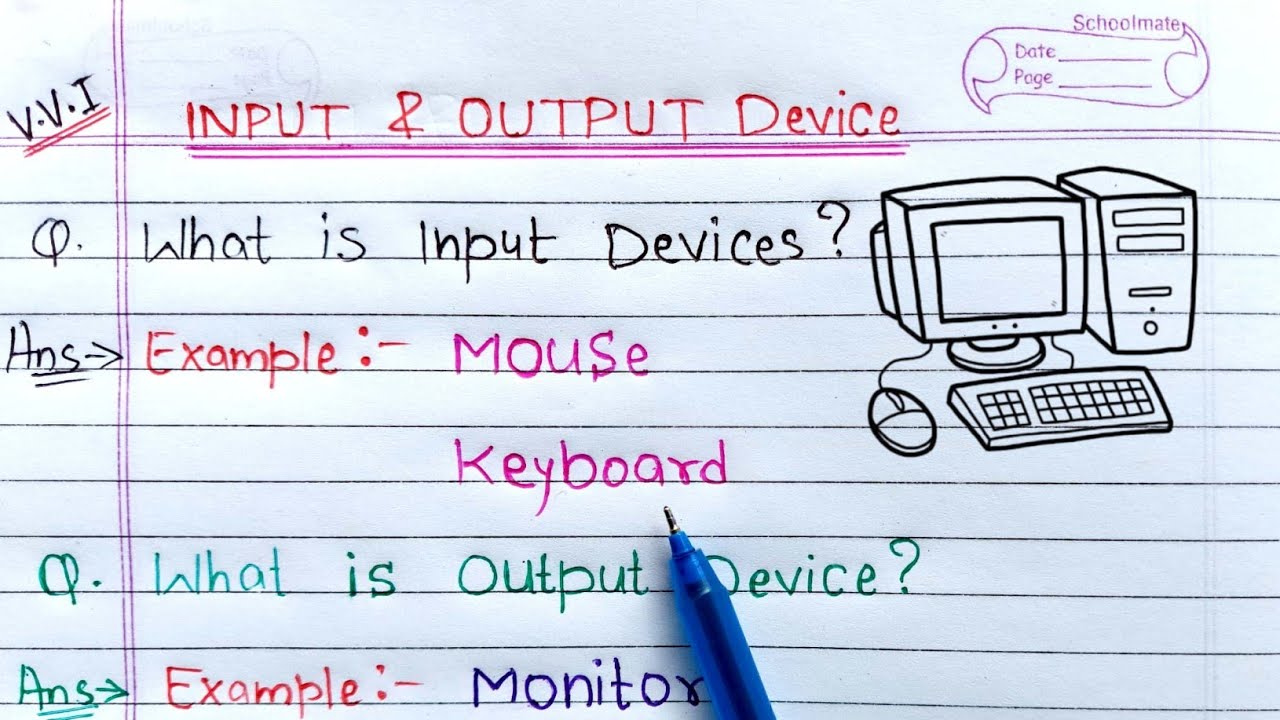 Schoolmate
Date
Page
V.V.I
INPUT & OUTPUT Device
Q. What is Input Devices?
Ans→ Example:- Mouse
Keyboard
Q. What is Output Device?
Ans→ Example:- Monitor